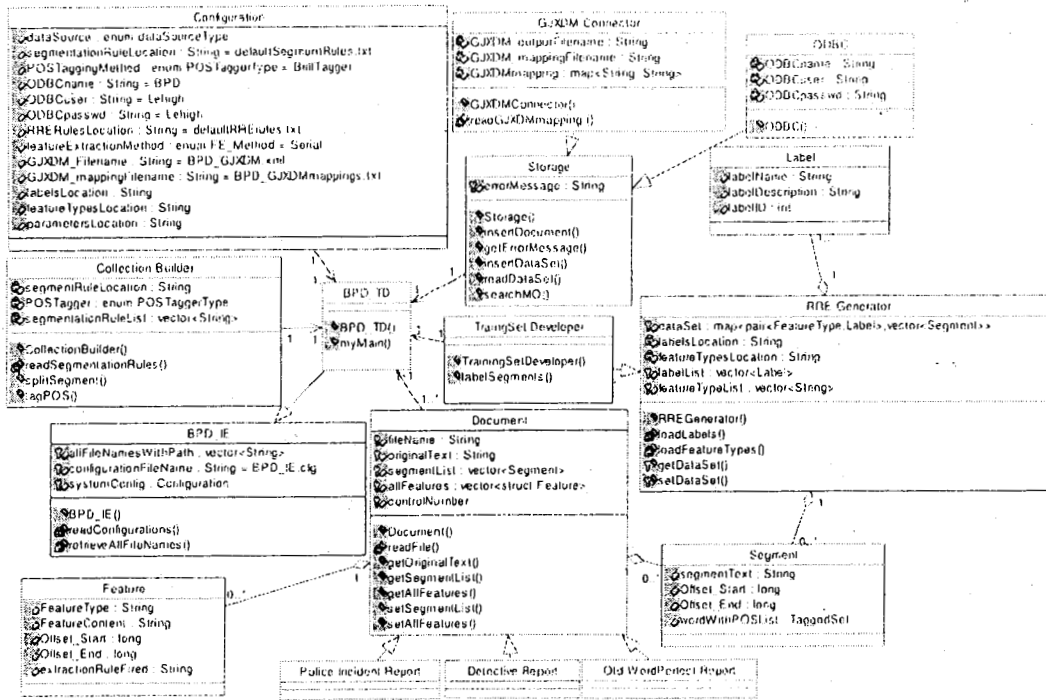 Configuration
dataSource : enum dataSourceType
segmentationRuleLocation : String = defaultSegmentRules.txt
POSTaggingMethod : enum POSTaggerType = BrillTagger
ODBCname : String = BPD
ODBCuser : String = Lehigh
ODBCpasswd : String = Lehigh
RRERulesLocation : String = defaultRRErules.txt
featureExtractionMethod : enum FE_Method = Serial
GJXDM_Filename : String = BPD_GJXDM.xml
GJXDM_mappingFilename : String = BPD_GJXDMmappings.txt
labelsLocation : String
featureTypesLocation : String
parametersLocation : String
GJXDM Connector
GJXDM_outputFilename : String
GJXDM_mappingFilename : String
GJXDMmapping : map<String, String>
GJXDMConnector()
readGJXDMmapping()
ODBC
ODBCname : String
ODBCuser : String
ODBCpasswd : String
ODBC()
Storage
errorMessage : String
Storage()
insertDocument()
getErrorMessage()
insertDataSet()
readDataSet()
searchMO()
Label
labelName : String
labelDescription : String
labelID : int
Collection Builder
segmentRuleLocation : String
POSTagger : enum POSTaggerType
segmentationRuleList : vector<String>
CollectionBuilder()
readSegmentationRules()
splitSegment()
tagPOS()
BPD_TD
BPD_TD()
myMain()
TraingSet Developer
TrainingSetDeveloper()
labelSegments()
RRE Generator
dataSet : map<pair<FeatureType,Label>,vector<Segment>>
labelsLocation : String
featureTypesLocation : String
labelList : vector<Label>
featureTypeList : vector<String>
RREGenerator()
loadLabels()
loadFeatureTypes()
getDataSet()
setDataSet()
1
1
1
1
1
1
1
1
1
1
1..*
BPD_IE
allFileNamesWithPath : vector<String>
configurationFileName : String = BPD_IE.cfg
systemConfig : Configuration
BPD_IE()
readConfigurations()
retrieveAllFileNames()
Document
fileName : String
originalText : String
segmentList : vector<Segment>
allFeatures : vector<struct Feature>
controlNumber
Document()
readFile()
getOriginalText()
getSegmentList()
getAllFeatures()
setSegmentList()
setAllFeatures()
1
0..*
1
0..*
1
0..*
Segment
segmentText : String
Offset_Start : long
Offset_End : long
wordWithPOSList : TaggedSet
Feature
FeatureType : String
FeatureContent : String
Offset_Start : long
Offset_End : long
extractionRuleFired : String
Police Incident Report
Detective Report
Old WordPerfect Report